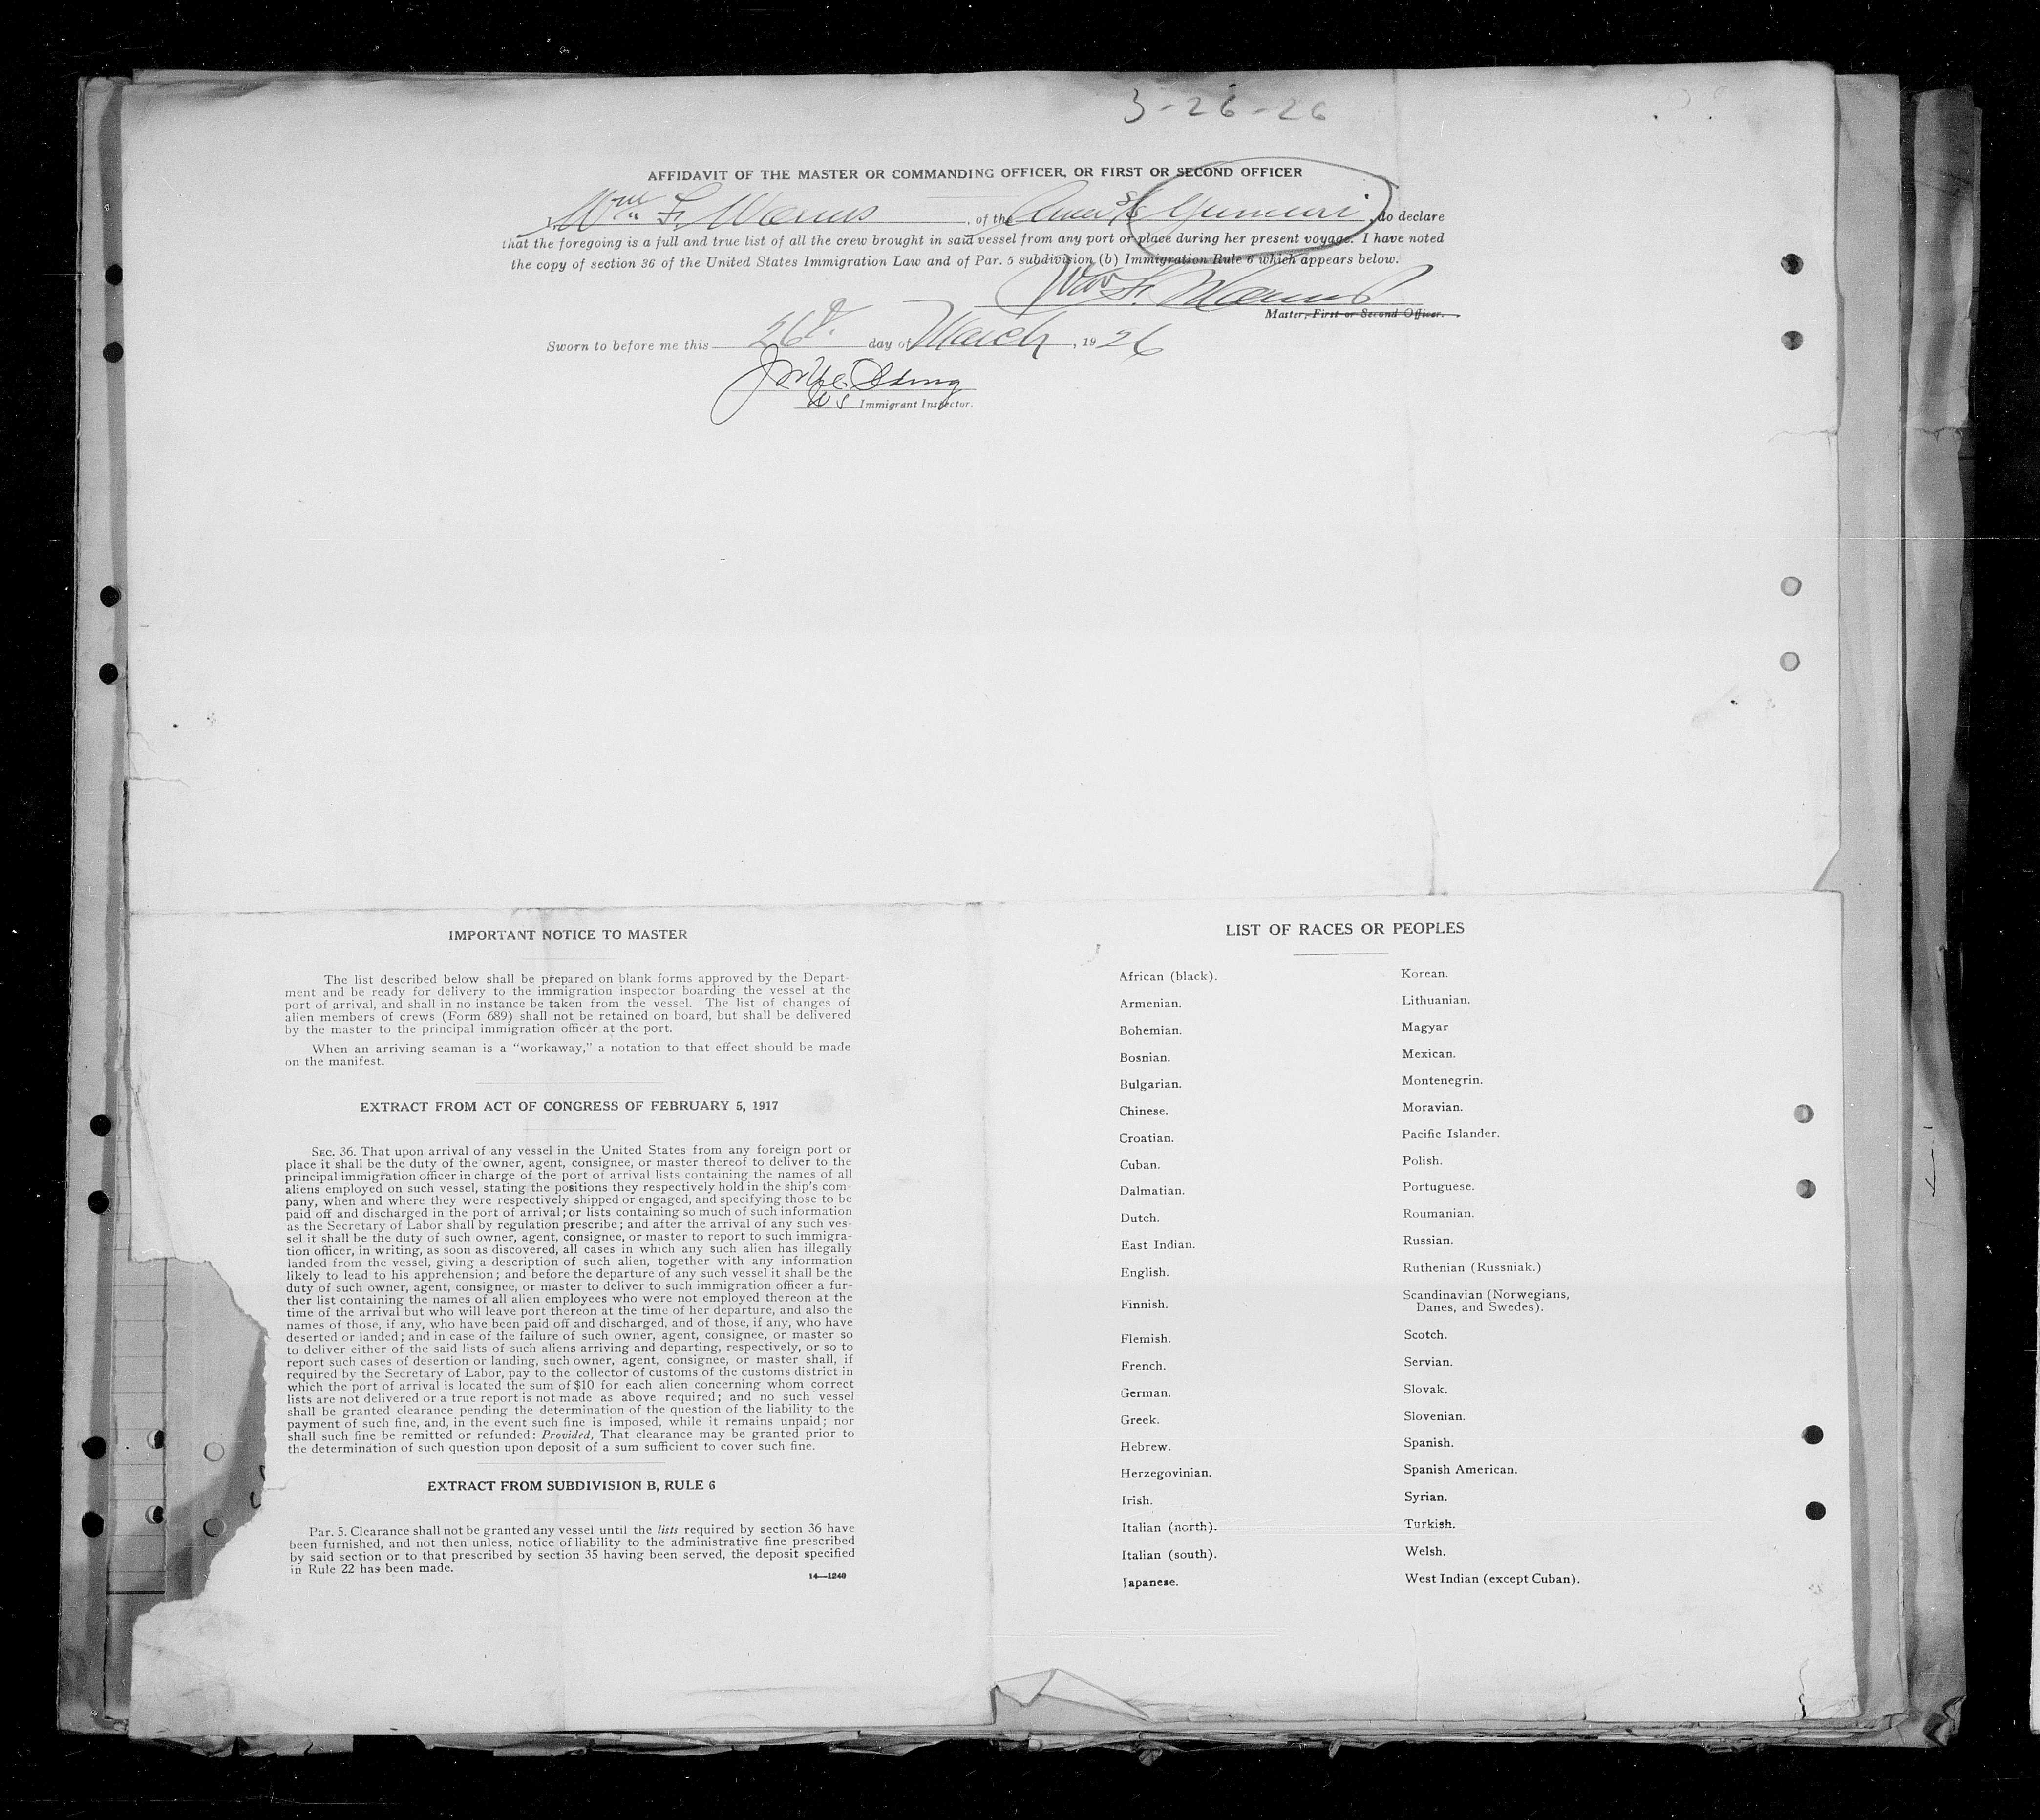 3-26-26
AFFIDAVIT OF THE MASTER OR COMMANDING OFFICER, OR FIRST OR SECOND OFFICER
I, Wm F. , of the Amer S/S Yumuri, do declare
that the foregoing is a full and true list of all the crew brought in said vessel from any port or place during her present voyage. I have noted
the copy of section 36 of the United States Immigration Law and of Par. 5 subdivision (b) Immigration Rule 6 which appears below.
Wm F.
Master, First or Second Officer.
Sworn to before me this 26 day of March, 1926
US Immigrant Inspector.
IMPORTANT NOTICE TO MASTER
The list described below shall be prepared on blank forms approved by the Depart-
ment and be ready for delivery to the immigration inspector boarding the vessel at the
port of arrival, and shall in no instance be taken from the vessel. The list of changes of
alien members of crews (Form 689) shall not be retained on board, but shall be delivered
by the master to the principal immigration officer at the port.
When an arriving seaman is a "workaway," a notation to that effect should be made
on the manifest.
EXTRACT FROM ACT OF CONGRESS OF FEBRUARY 5, 1917
SEC. 36. That upon arrival of any vessel in the United States from any foreign port or
place it shall be the duty of the owner, agent, consignee, or master thereof to deliver to the
principal immigration officer in charge of the port of arrival lists containing the names of all
aliens employed on such vessel, stating the positions they respectively hold in the ship's com-
pany, when and where they were respectively shipped or engaged, and specifying those to be
paid off and discharged in the port of arrival; or lists containing so much of such information
as the Secretary of Labor shall by regulation prescribe; and after the arrival of any such ves-
sel it shall be the duty of such owner, agent, consignee, or master to report to such immigra-
tion officer, in writing, as soon as discovered, all cases in which any such alien has illegally
landed from the vessel, giving a description of such alien, together with any information
likely to lead to his apprehension; and before the departure of any such vessel it shall be the
duty of such owner, agent, consignee, or master to deliver to such immigration officer a fur-
ther list containing the names of all alien employees who were not employed thereon at the
time of the arrival but who will leave port thereon at the time of her departure, and also the
names of those, if any, who have been paid off and discharged, and of those, if any, who have
deserted or landed; and in case of the failure of such owner, agent, consignee, or master so
to deliver either of the said lists of such aliens arriving and departing, respectively, or so to
report such cases of desertion or landing, such owner, agent, consignee, or master shall, if
required by the Secretary of Labor, pay to the collector of customs of the customs district in
which the port of arrival is located the sum of $10 for each alien concerning whom correct
lists are not delivered or a true report is not made as above required; and no such vessel
shall be granted clearance pending the determination of the question of the liability to the
payment of such fine, and, in the event such fine is imposed, while it remains unpaid; nor
shall such fine be remitted or refunded: Provided, That clearance may be granted prior to
the determination of such question upon deposit of a sum sufficient to cover such fine.
EXTRACT FROM SUBDIVISION B, RULE 6
Par. 5. Clearance shall not be granted any vessel until the lists required by section 36 have
been furnished, and not then unless, notice of liability to the administrative fine prescribed
by said section or to that prescribed by section 35 having been served, the deposit specified
in Rule 22 has been made.
14—1240
LIST OF RACES OR PEOPLES
African (black).
Armenian.
Bohemian.
Bosnian.
Bulgarian.
Chinese.
Croatian.
Cuban.
Dalmatian.
Dutch.
East Indian.
English.
Finnish.
Flemish.
French.
German.
Greek.
Hebrew.
Herzegovinian.
Irish.
Italian (north).
Italian (south).
Japanese.
Korean.
Lithuanian.
Magyar
Mexican.
Montenegrin.
Moravian.
Pacific Islander.
Polish.
Portuguese.
Roumanian.
Russian.
Ruthenian (Russniak.)
Scandinavian (Norwegians,
Danes, and Swedes).
Scotch.
Servian.
Slovak.
Slovenian.
Spanish.
Spanish American.
Syrian.
Turkish.
Welsh.
West Indian (except Cuban).